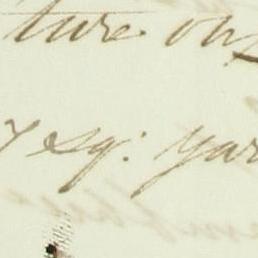 ture on
y sq: yar